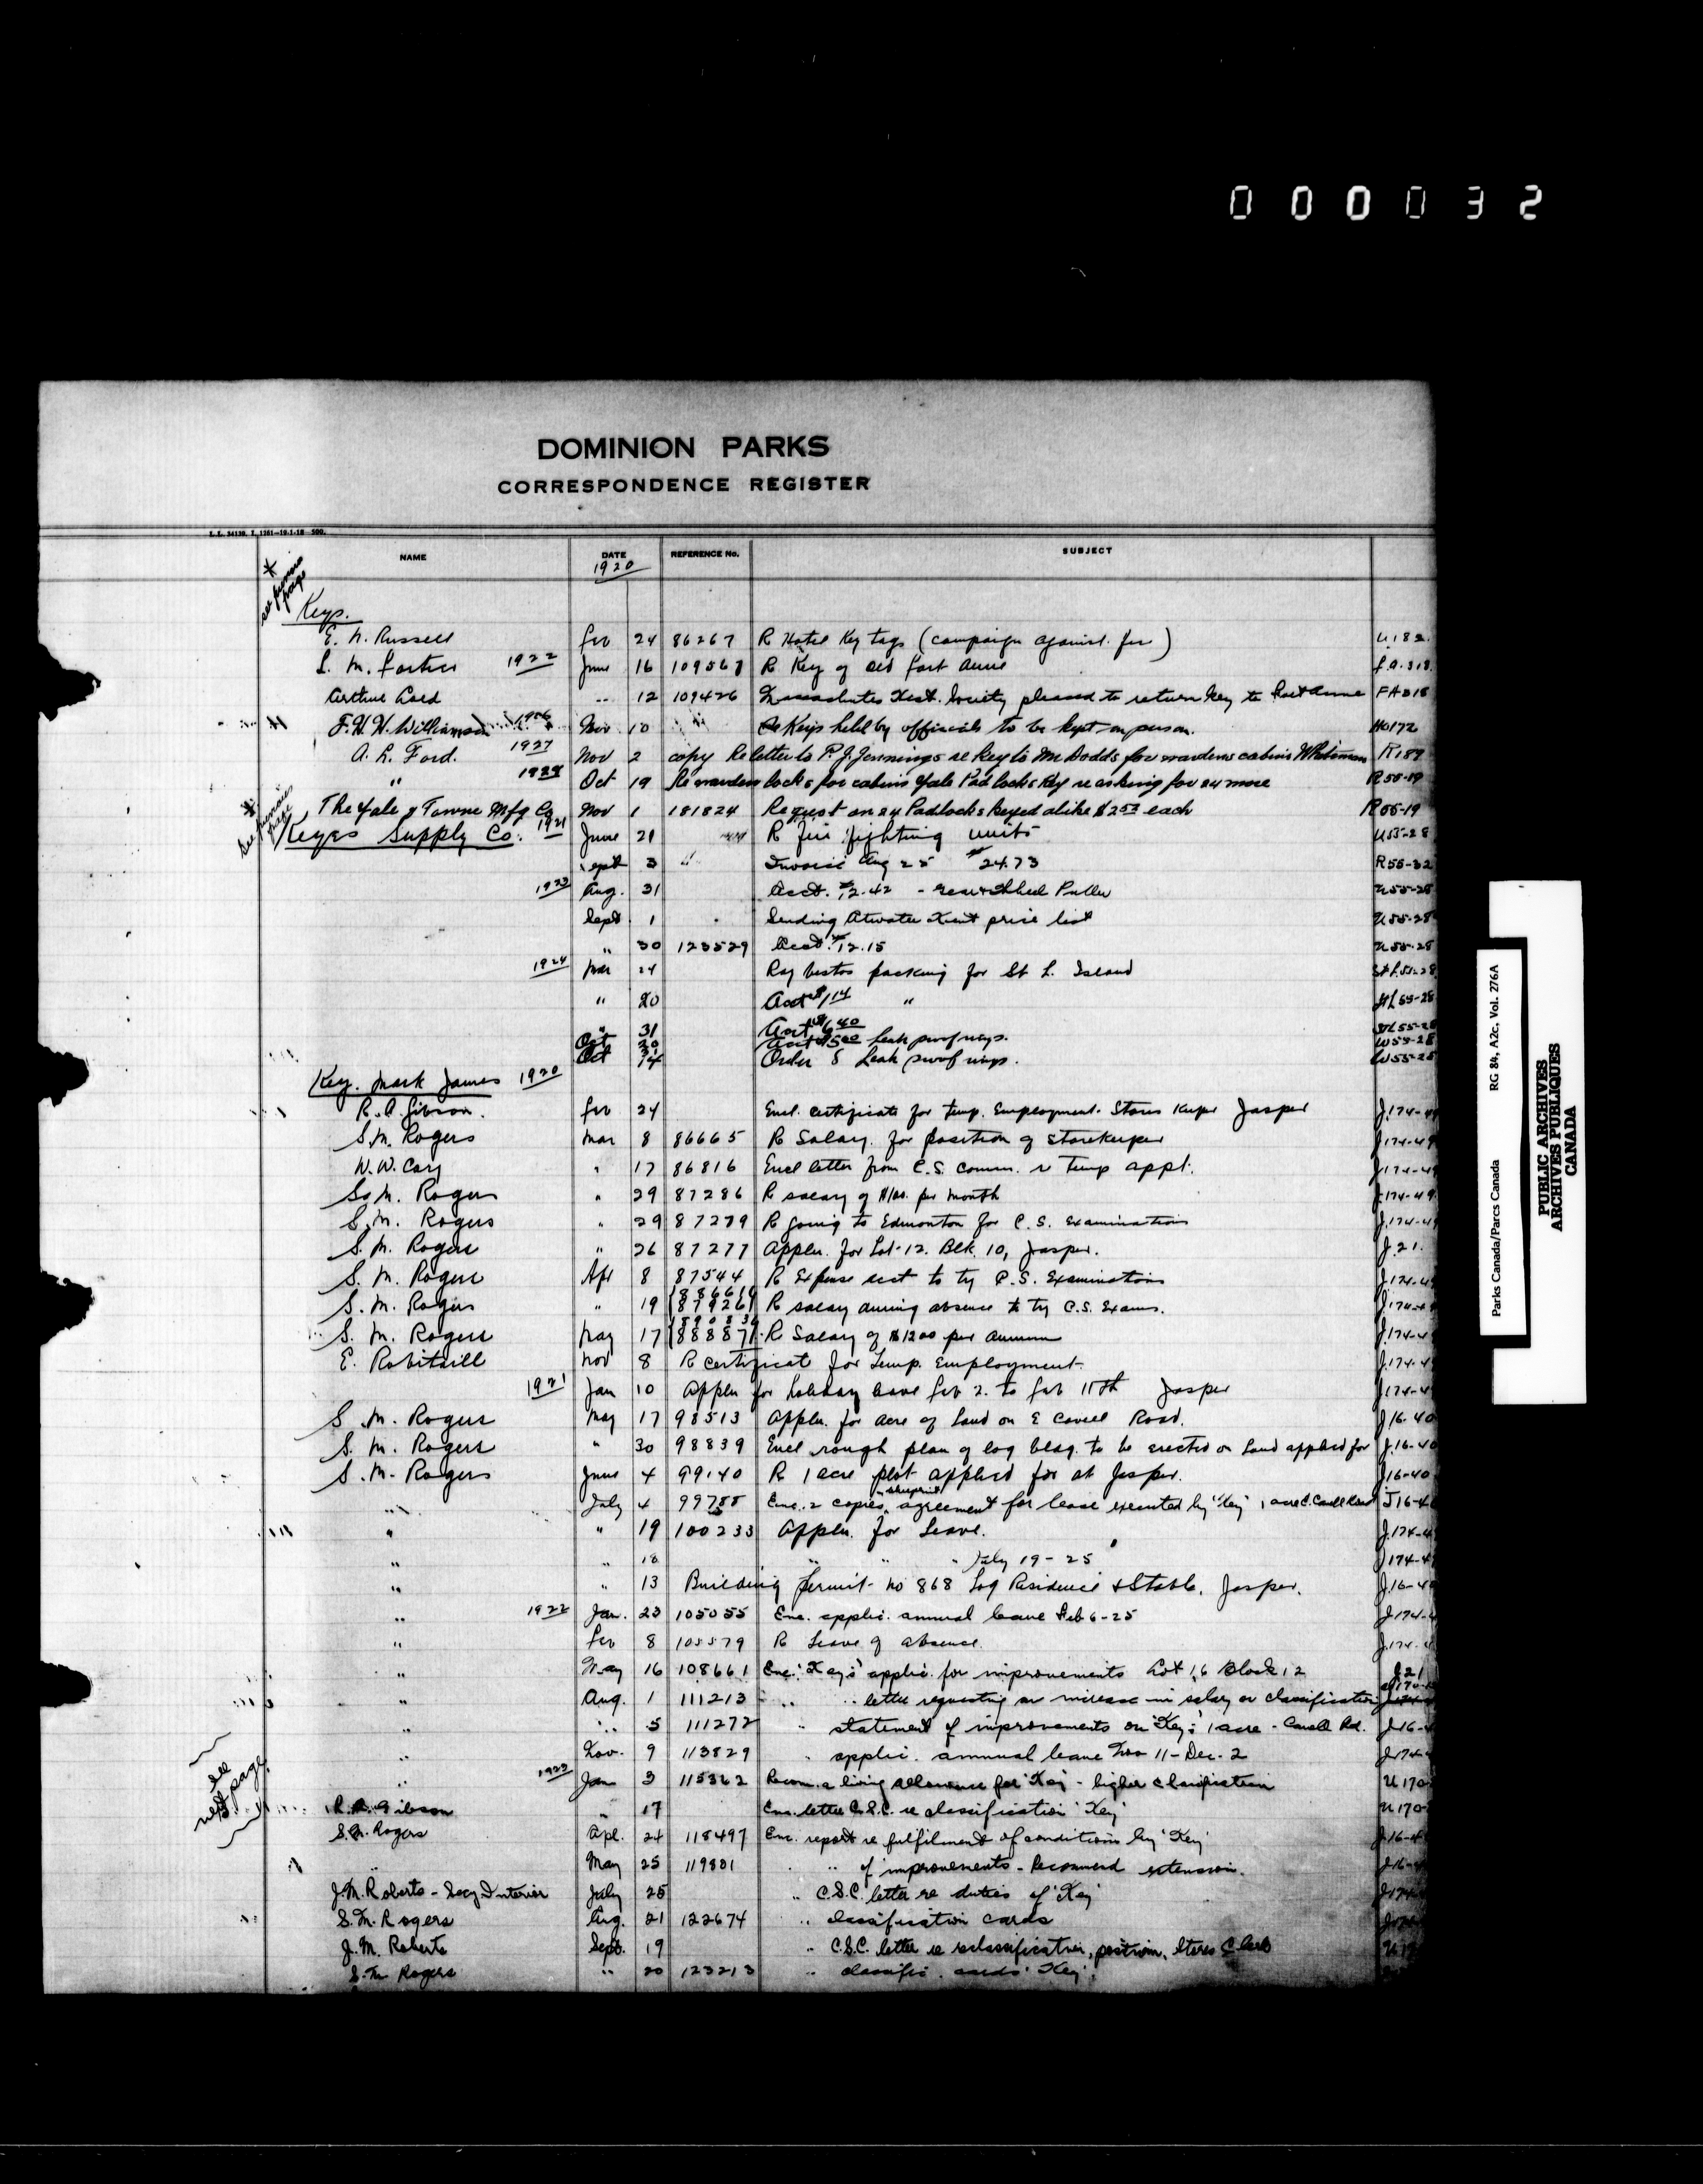 000032
DOMINION PARKS
CORRESPONDENCE REGISTER
NAME DATE REFERENCE No. SUBJECT
1920
* see previous page
Keys.
E. N. Russell Feb 24 86267 R Hotel Key tags (campaign against fire) U.182.
L. M. Fortier 1922 June 16 R Key of old Fort Anne F.A.318.
12 109426 Massachutes Hist. Society pleased to return key to Fort Anne
F.H.H. Williamson Nov 10 Re Keys held by officials to be kept on person.
A. L. Ford. 1927 Nov 2 copy Re letter to P.J. Jennings re key to Mr Dodds for wardens cabins R189
" Oct 19 Re wardens locks for cabins Yale Pad locks & Key re asking for 24 more R55-19
* see previous page
The Yale & Towne Mfg Co Nov 1 181824 Request on 24 Padlocks keyed alike each R55-19
Keyes Supply Co. 1921 June 21 R fire fighting units U55-28
Sept 3 Invoice Aug 25 $24.73 R55-32
1923 Aug. 31 Acct. Puller U55-28
Sept 1 Sending Atwater Kent price list U55-28
" 30 123529 Acct. U55-28
1924 Mar 24 Ray bestos packing for St L. Island
" 20 Acct "
" 31 Acct
Oct 20 Acct leak proof rings. W55-28
Oct 14 Order 8 Leak proof rings. W55-28
Key. Mark James 1920
R. A. Gibson. Feb 24 Encl. certificate for temp. Employment. Stores Keeper Jasper J.174-49
S.M. Rogers Mar 8 86665 R Salary for position of storekeeper J174-49
W.W. Cory " 17 86816 Encl letter from C.S. Comm. re Temp appt. J174-49
S. M. Rogers " 29 87286 R salary of $100. per month J.174-49
S.M. Rogers " 29 87279 R going to Edmonton for C.S. Examinations J.174-49
S. M. Rogers " 26 87277 Applcn. for Lot-12. Blk. 10, Jasper. J.21.
S. M. Rogers Apr 8 87544 R Expense acct to try C.S. Examinations J.174-49
S. M. Rogers " 19 87926 R salary during absence to try C.S. Exams.
S. M. Rogers May 17 88887 R Salary of $1200 per annum J.174-4
E. Robitaill Nov 8 R certificate for Temp. Employment. J.174-4
1921 Jan 10 Applcn for holiday leave Feb 2. to Feb 11th Jasper J.174-4
S. M. Rogers May 17 98513 Applcn. for acre of Land on E Cavell Road. J16-40
S. M. Rogers " 30 98839 Encl rough plan of log bldg. to be erected on Land applied for J.16-40
S. M. Rogers June 4 99140 R 1 acre plot applied for at Jasper. J16-40
" July 4 99788 Enc. 2 copies in blueprint agreement for lease executed by 'Key' 1 acre E. Cavell Road J16-4
" " 19 100233 Applcn. for Leave. J.174-4
" " 18 " " " July 19-25 J174-4
" " 13 Building permit no 868 Log Residence & Stable, Jasper. J.16-4
" 1922 Jan. 23 105055 Enc. applic. annual leave Feb 6-25 J174-
" Feb 8 105579 R Leave of absence. J.174-4
" May 16 108661 Enc. 'Key's' applic. for improvements Lot 16 Block 12 J21
" Aug. 1 111213 " " letter requesting an increase in salary or classification
" " 5 111272 " statement of improvements on 'Key's' 1 acre - Cavell Rd. J-16-4
" Nov. 9 113829 " applic. annual leave Nov 11-Dec. 2 J-174-
see next page
" 1923 Jan 3 115362 Recom. a living allowance for 'Key' - higher classification U 170-
R. A. Gibson " 17 Enc. letter C.S.C. re classification 'Key' U 170-
S.M. Rogers Apl. 24 118497 Enc. report re fulfilment of conditions by 'Key' J.16-4
" May 25 119801 " " of improvements - Recommend extension. J16-4
J.M. Roberts - Secy. Interior July 25 " C.S.C. letter re duties of 'Key' J174
S.M. Rogers Aug. 21 122674 " classification cards
J.M. Roberts Sept. 19 " C.S.C. letter re reclassification, position, Stores Clerk
S.M. Rogers " 20 123213 " classific. cards 'Key'.
Parks Canada/Parcs Canada RG 84, A2c, Vol. 276A
PUBLIC ARCHIVES
ARCHIVES PUBLIQUES
CANADA